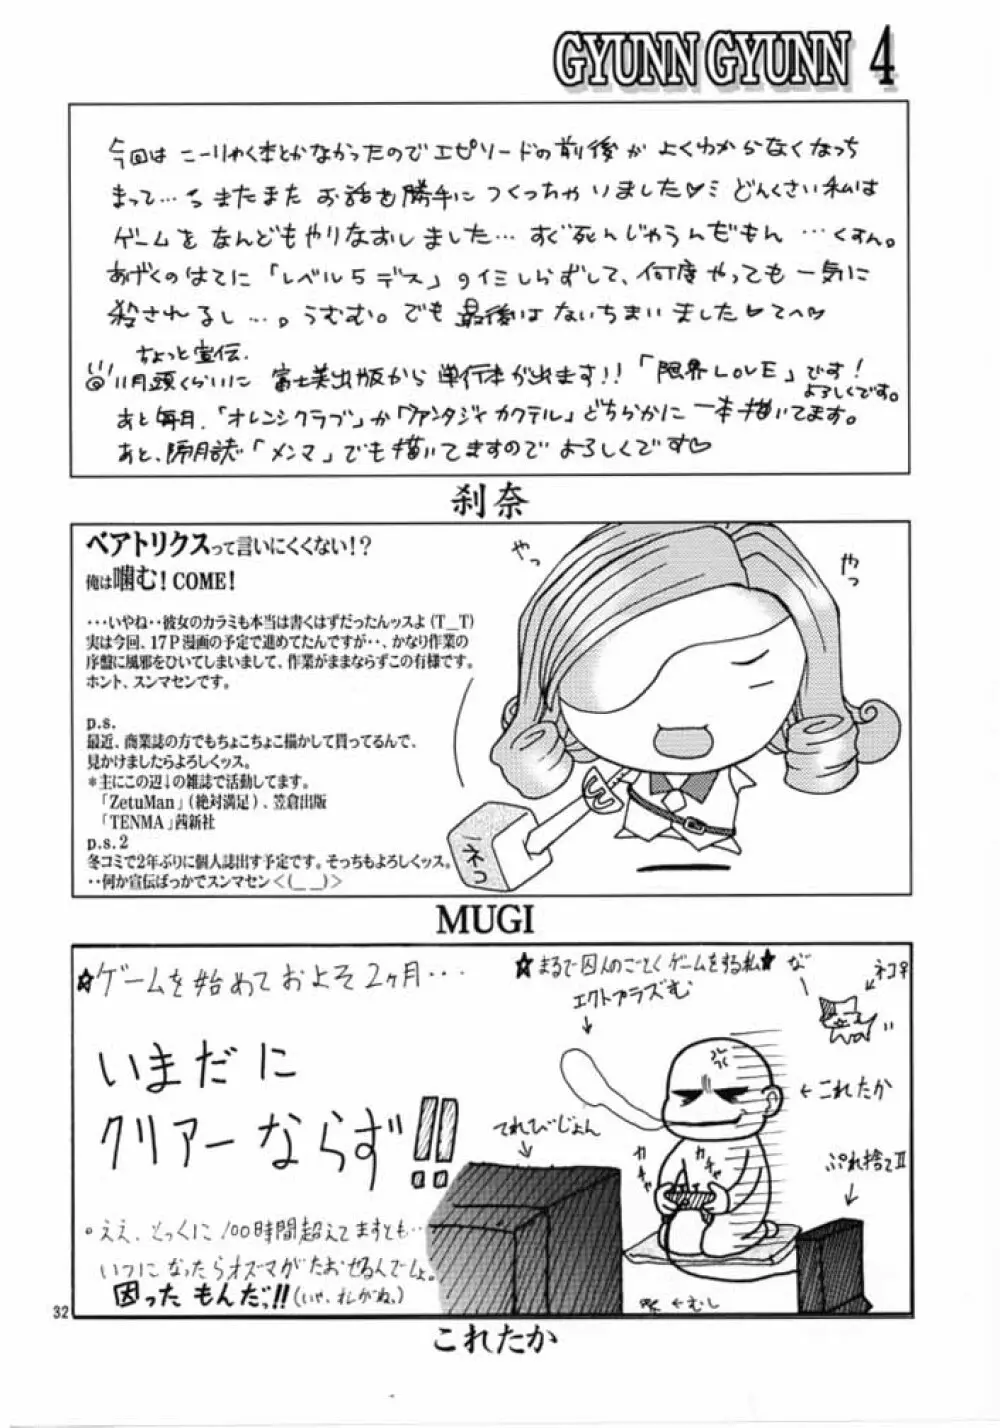 GYUNN GYUNN 4
今回は こーりゃく本とかなかったのでエピソードの前後が よくわからなくなっち
まって…、またまた お話を勝手に つくっちゃいました♡ミ どんくさい私は
ゲームを なんどもやりなおしました… すぐ死んじゃうんだもん …くすん。
あげくのはてに「レベル5デス」のイミしらずして、何度やっても一気に
殺されるし…。うむむ。でも最後はないちまいました♡てへ♡
ちょっと宣伝.
11月頭くらいに 富士美出版から 単行本が出ます!!「限界LOVE」です!
よろしくです。
あと毎月、「オレンジクラブ」か「ファンタジィカクテル」どちらかに一本描いてます。
あと、隔月誌「メンマ」でも描いてますのでよろしくです♡
刹奈
ベアトリクスって言いにくくない!?
俺は噛む! COME!
・・・いやね・・彼女のカラミも本当は書くはずだったんッスよ(T_T)
実は今回、17P漫画の予定で進めてたんですが・・、かなり作業の
序盤に風邪をひいてしまいまして、作業がままならずこの有様です。
ホント、スンマセンです。
p.s.
最近、商業誌の方でもちょこちょこ描かして貰ってるんで、
見かけましたらよろしくッス。
*主にこの辺↓の雑誌で活動してます。
「ZetuMan」(絶対満足)、笠倉出版
「TENMA」茜新社
p.s.2
冬コミで2年ぶりに個人誌出す予定です。そっちもよろしくッス。
・・何か宣伝ばっかでスンマセン<(_ _)>
やっ
やっ
ネコ
MUGI
☆ゲームを始めておよそ2ヶ月・・・
いまだに
クリアーならず!!
。ええ、とっくに100時間超えてますとも…
いつになったらオズマがたおせるんでしょ。
困ったもんだっ!!(いや、オレがね。)
☆まるで囚人のごとくゲームをする私★
エクトプラズむ
な
ネコ
←これたか
てれびじょん
ガチャ
ガチャ
ぷれ捨てII
←むし
32
これたか